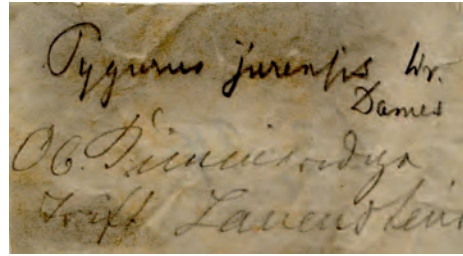 Pygurus jurensis Wr.
Dames
Ob. Kimmeridge
Trift Lauenstein